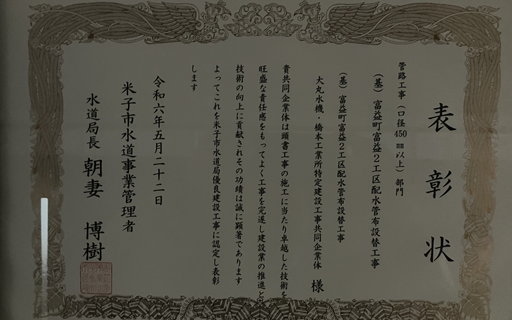 表彰状
管路工事(口径450㎜以上)部門
(基)富益町富益2工区配水管布設替工事
(基)富益町富益2工区配水管布設替工事
大丸水機・橋本工業所特定建設工事共同企業体 様
貴共同企業体は頭書工事の施工に当たり卓越した技術を
旺盛な責任感をもってよく工事を完遂し建設業の推進と
技術の向上に貢献されその功績は誠に顕著であります
よってこれを米子市水道局優良建設工事に認定し表彰
します
令和六年五月二十二日
米子市水道事業管理者
水道局長 朝妻 博樹